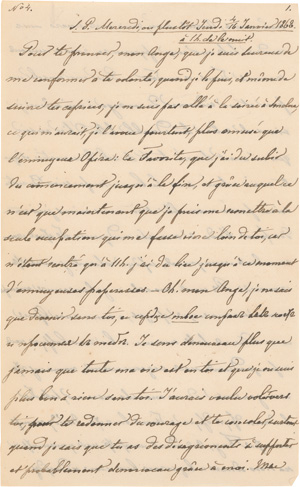 No 4. 1.
S. P. Mercredi, ou plutôt Jeudi 4/16 Janvier 1868.
à 1 h. de la nuit
Pour te prouver, mon Ange, que je suis heureux de
me conformer à ta volonté, quand je le puis, et même de
suivre tes , je ne suis pas allé à la soirée à
ce qui m'aurait, je l'avoue pourtant, plus amusé que
l'ennuyeux Opéra: la Favorite, que j'ai dû subir
du commencement jusqu'à la fin, et grâce auquel ce
n'est que maintenant que je puis me remettre à la
seule occupation qui me fasse vivre loin de toi, car
n'étant rentré qu'à 11h. j'ai dû lire jusqu'à ce moment
d'ennuyeuses paperasses. — Oh! mon Ange, je ne sais
que devenir sans toi,

Je sens de nouveau plus que
jamais que toute ma vie est en toi et que je ne suis
plus bon à rien sans toi. J'aurais voulu voler vers
toi, pour te redonner du courage et te consoler, surtout
quand je sais que tu as des désagréments à supporter
et probablement de nouveau grâce à moi.